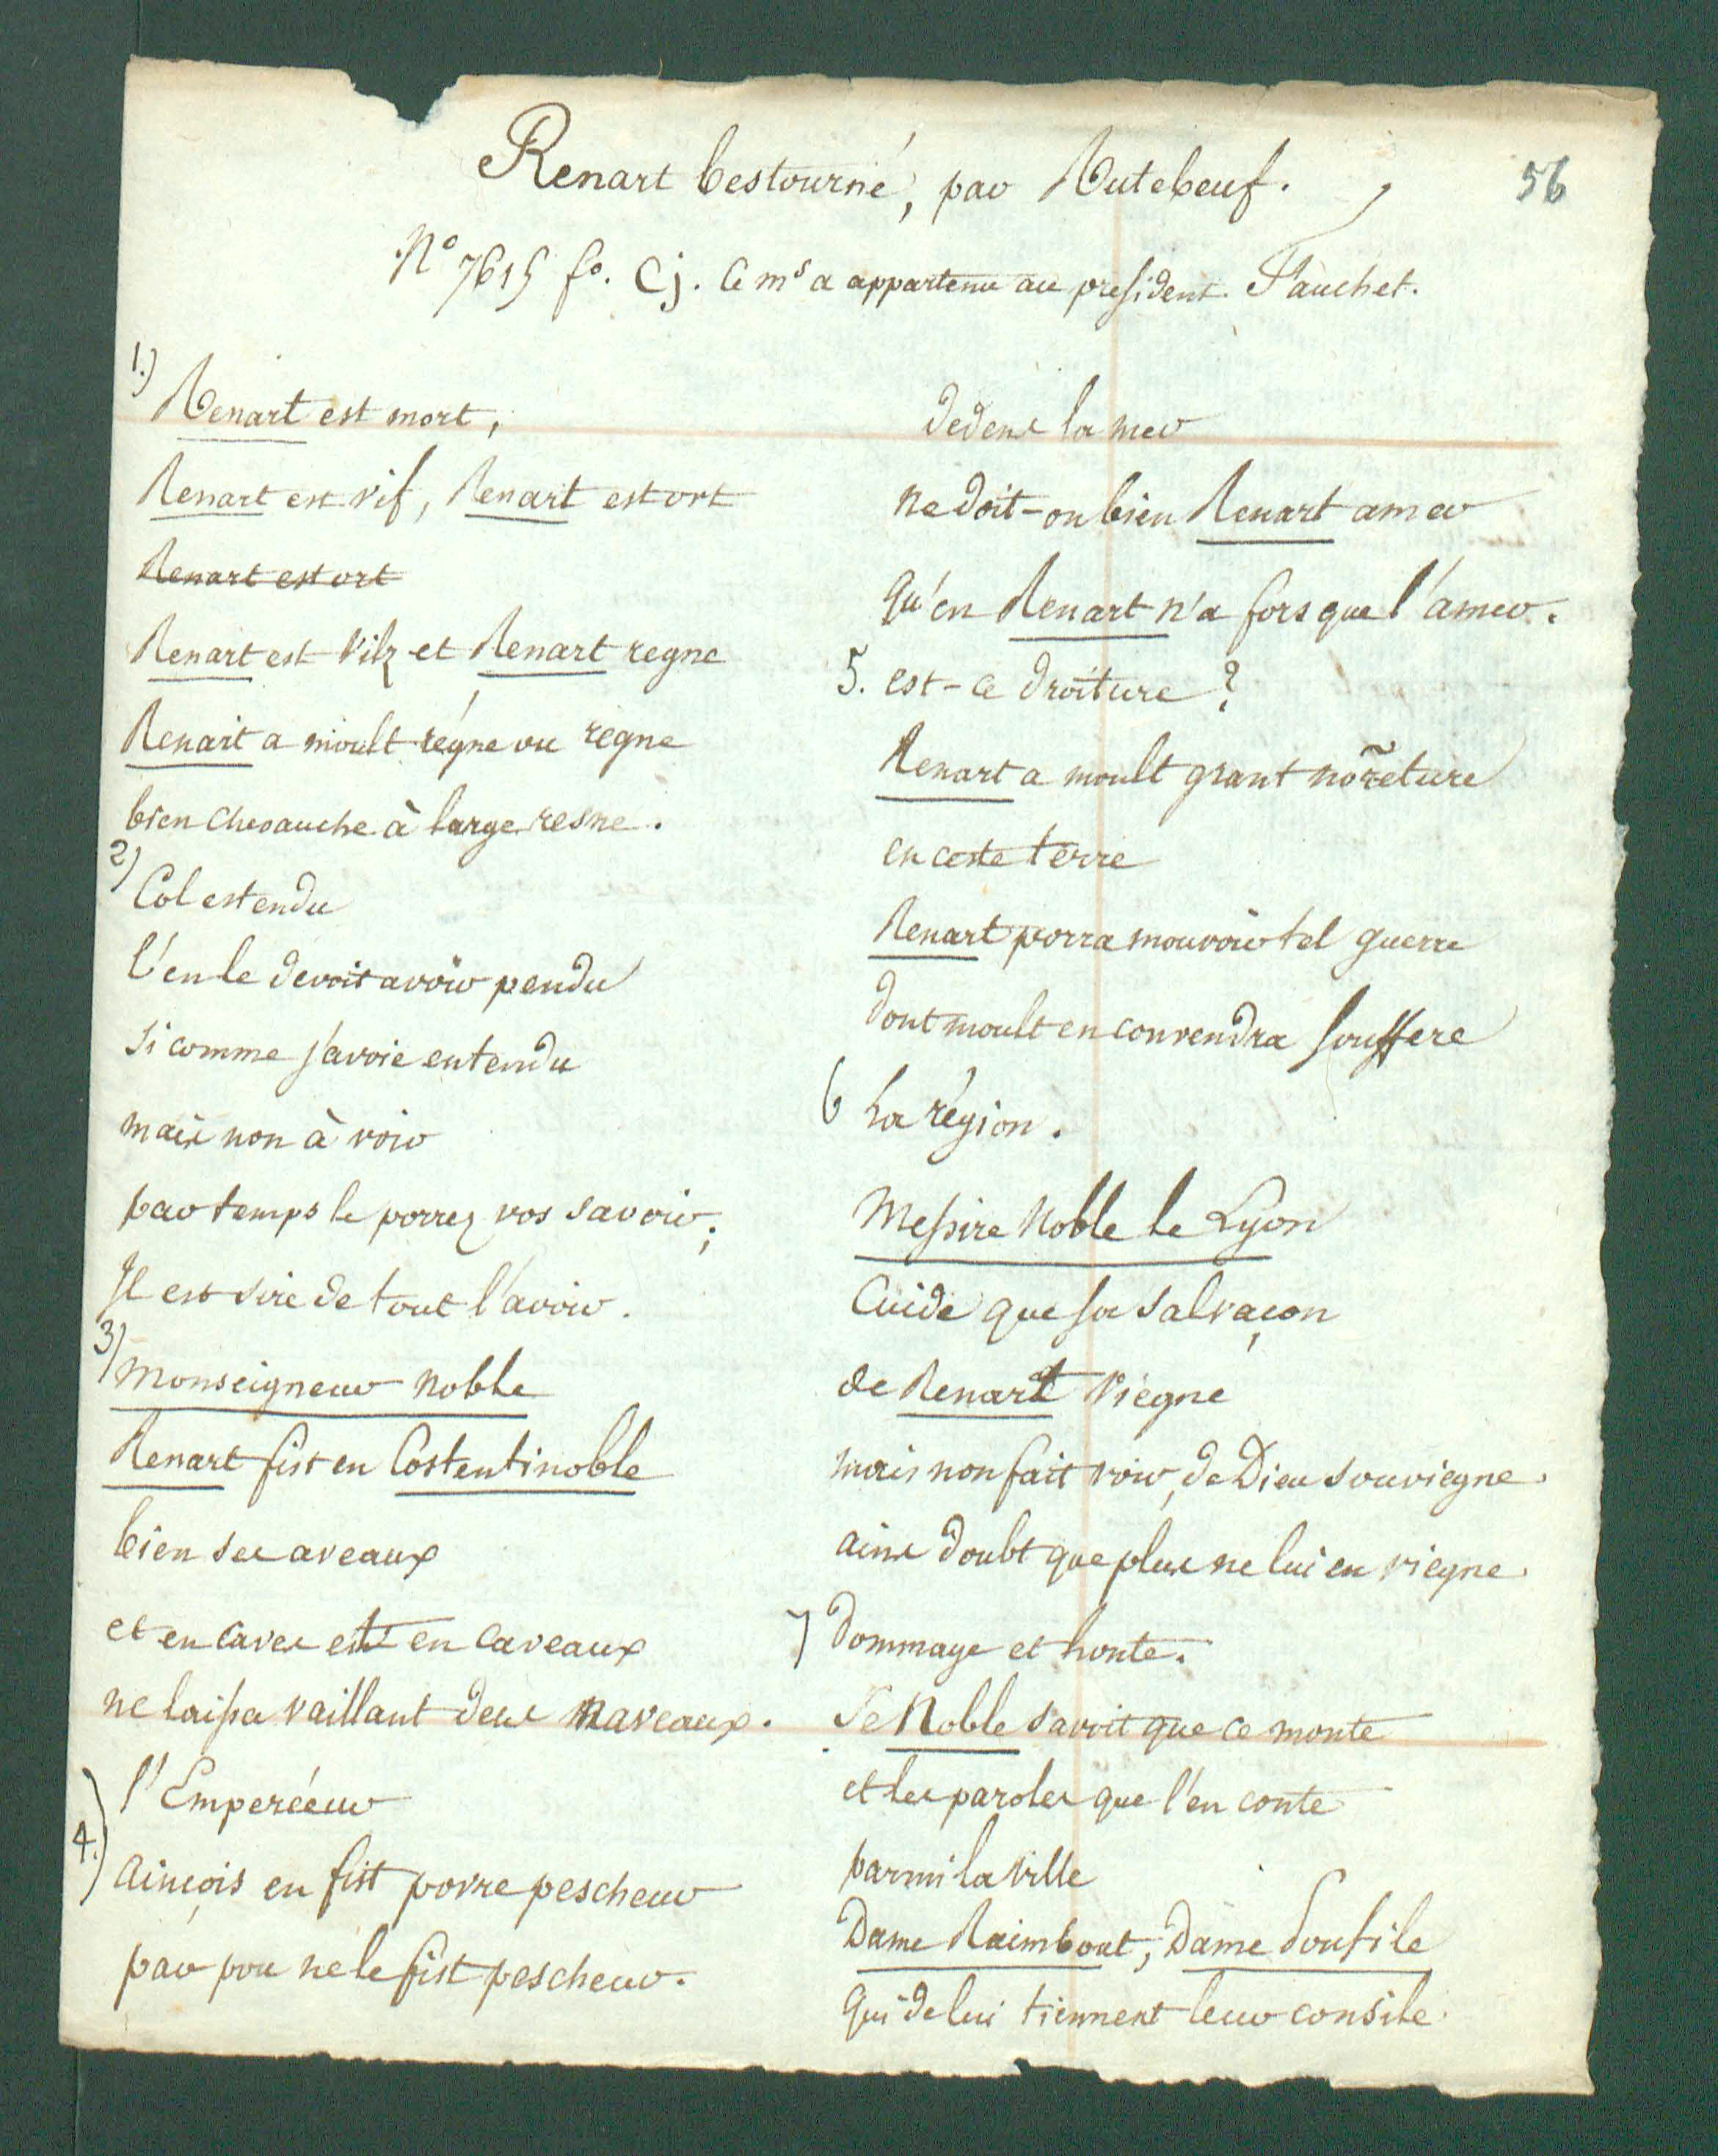 Renart bestourné, par Rutebeuf.
56
N° 7615 f°. Cj. Ce ms a appartenu au president Fauchet.
1.)
Renart est mort,
Renart est vif, Renart est ort
Renart est ort
Renart est vilz et Renart regne
Renart a moult régné ou regne
bien chevauche à large resne.
2)
Col estendu
l'en le devoit avoir pendu
si comme j'avoie entendu
mais non à voir
par temps le porrez vos savoir;
Il est sire de tout l'avoir.
3)
Monseigneur Noble
Renart fist en Costentinoble
bien ses aveaux
et en caves et en caveaux
ne laissa vaillant deus naveaux.
l'Emperéeur
4.)
ainçois en fist povre pescheur
par pou ne le fist pescheur.
dedens la mer
ne doit-on bien Renart amer
qu'en Renart n'a fors que l'amer.
5. est-ce droiture?
Renart a moult grant nor̃eture
en ceste terre
Renart porra mouvoir tel guerre
dont moult en convendra souffere
6 La région.
Messire Noble le Lyon
Cuide que sa salvaçon
de Renart viegne
mais non fait voir, de Dieu souviegne.
ains doubt que plus ne lui en viegne.
7 dommage et honte.
Se Noble savoit que ce monte
et les paroles que l'en conte
parmi la ville
Dame Raimbout, Dame Poufile
qui de lui tiennent leur consile